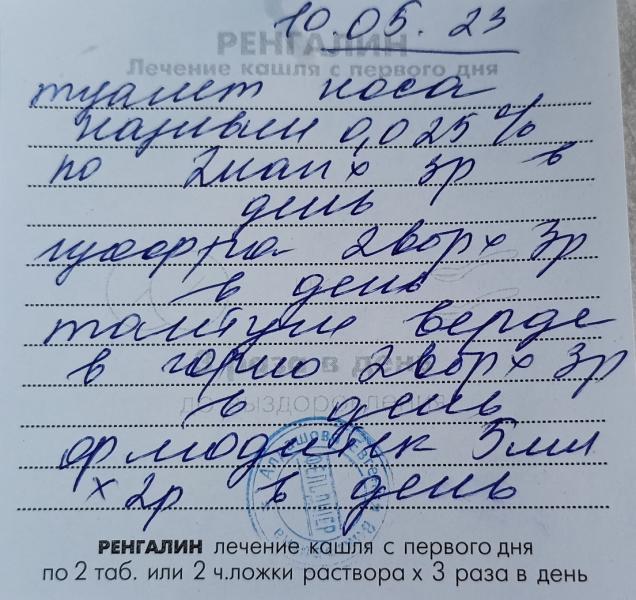 10.05.23
РЕНГАЛИН
Лечение кашля с первого дня
туалет носа
називин 0,025%
по 2 кап х 3р в
день
2 впр х 3р
в день
тантум верде
в горло 2 впр х 3р
в день
5 мл
х 2р в день
ФЕЛЬДШЕР
РЕНГАЛИН лечение кашля с первого дня
по 2 таб. или 2 ч.ложки раствора х 3 раза в день